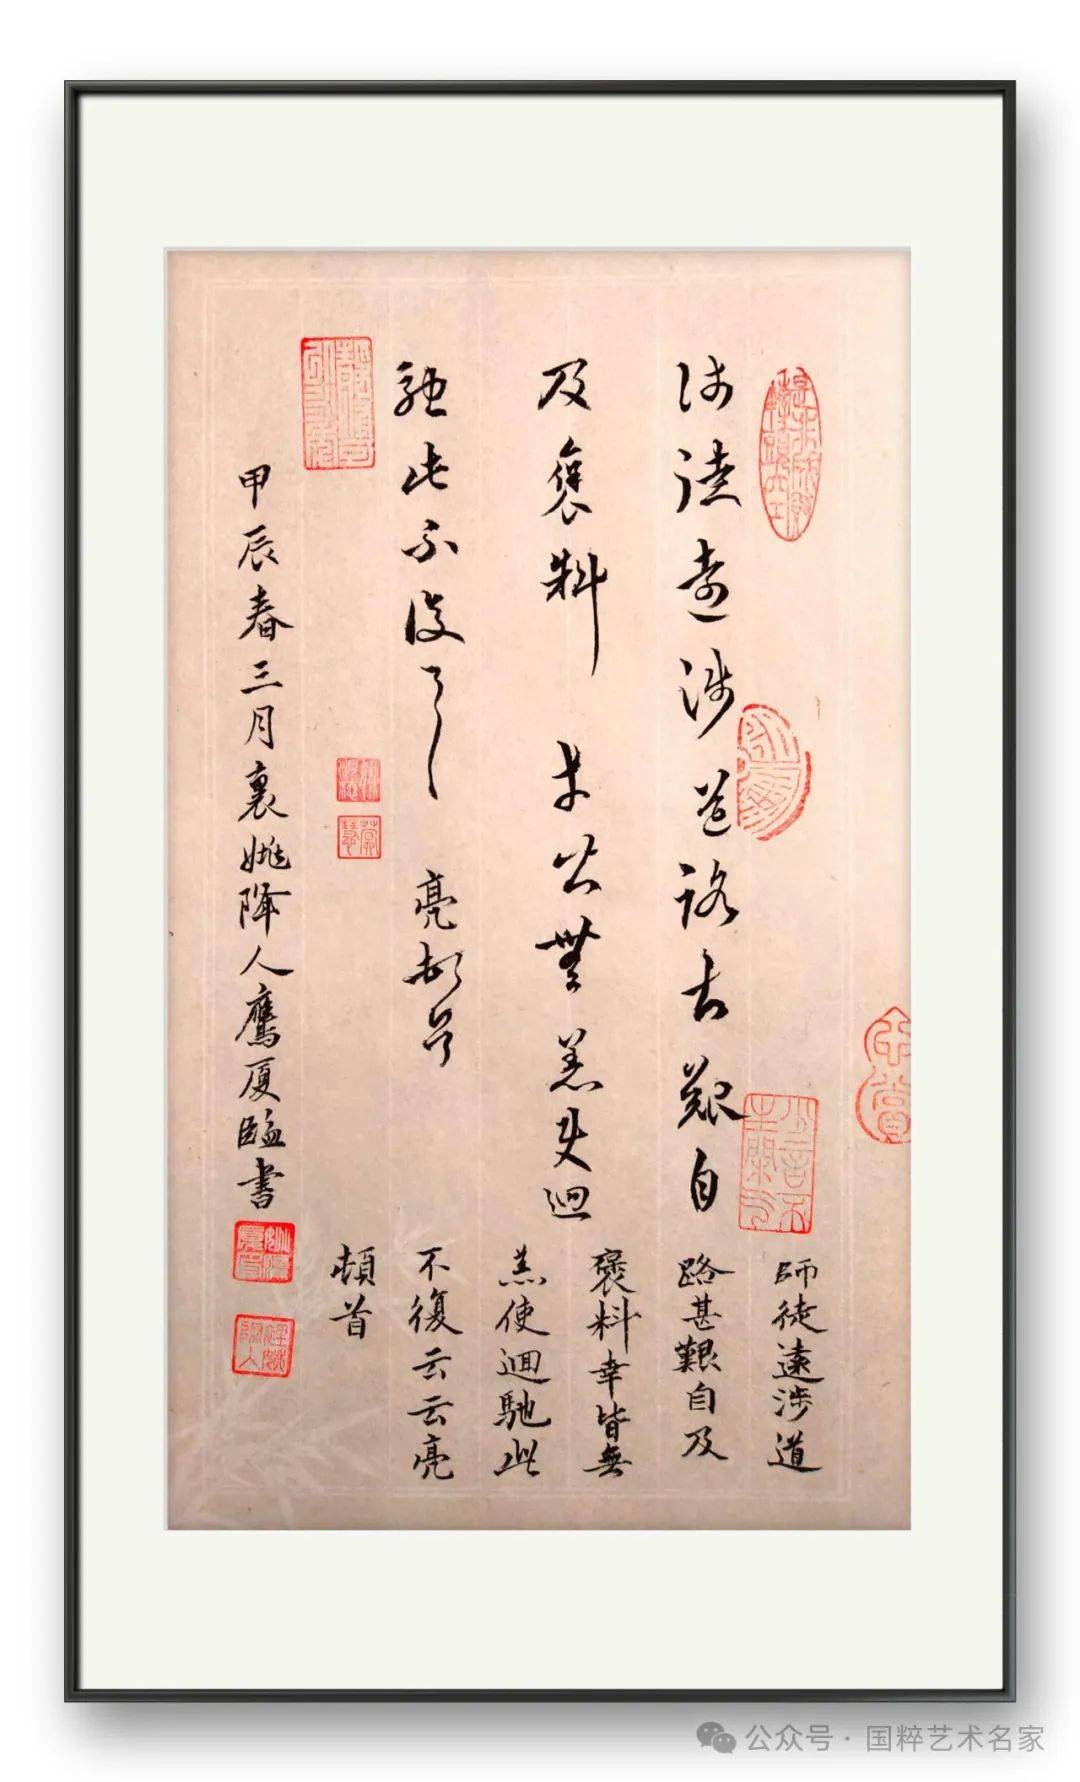 师徒远涉道路甚艰自
及褒料幸皆無恙使迴
驰此不復云云亮顿首
師徒遠涉道
路甚艱自及
褒料幸皆無
恙使迴馳此
不復云云亮
頓首
甲辰春三月裏姚降人鷹厦臨書
公众号·国粹艺术名家